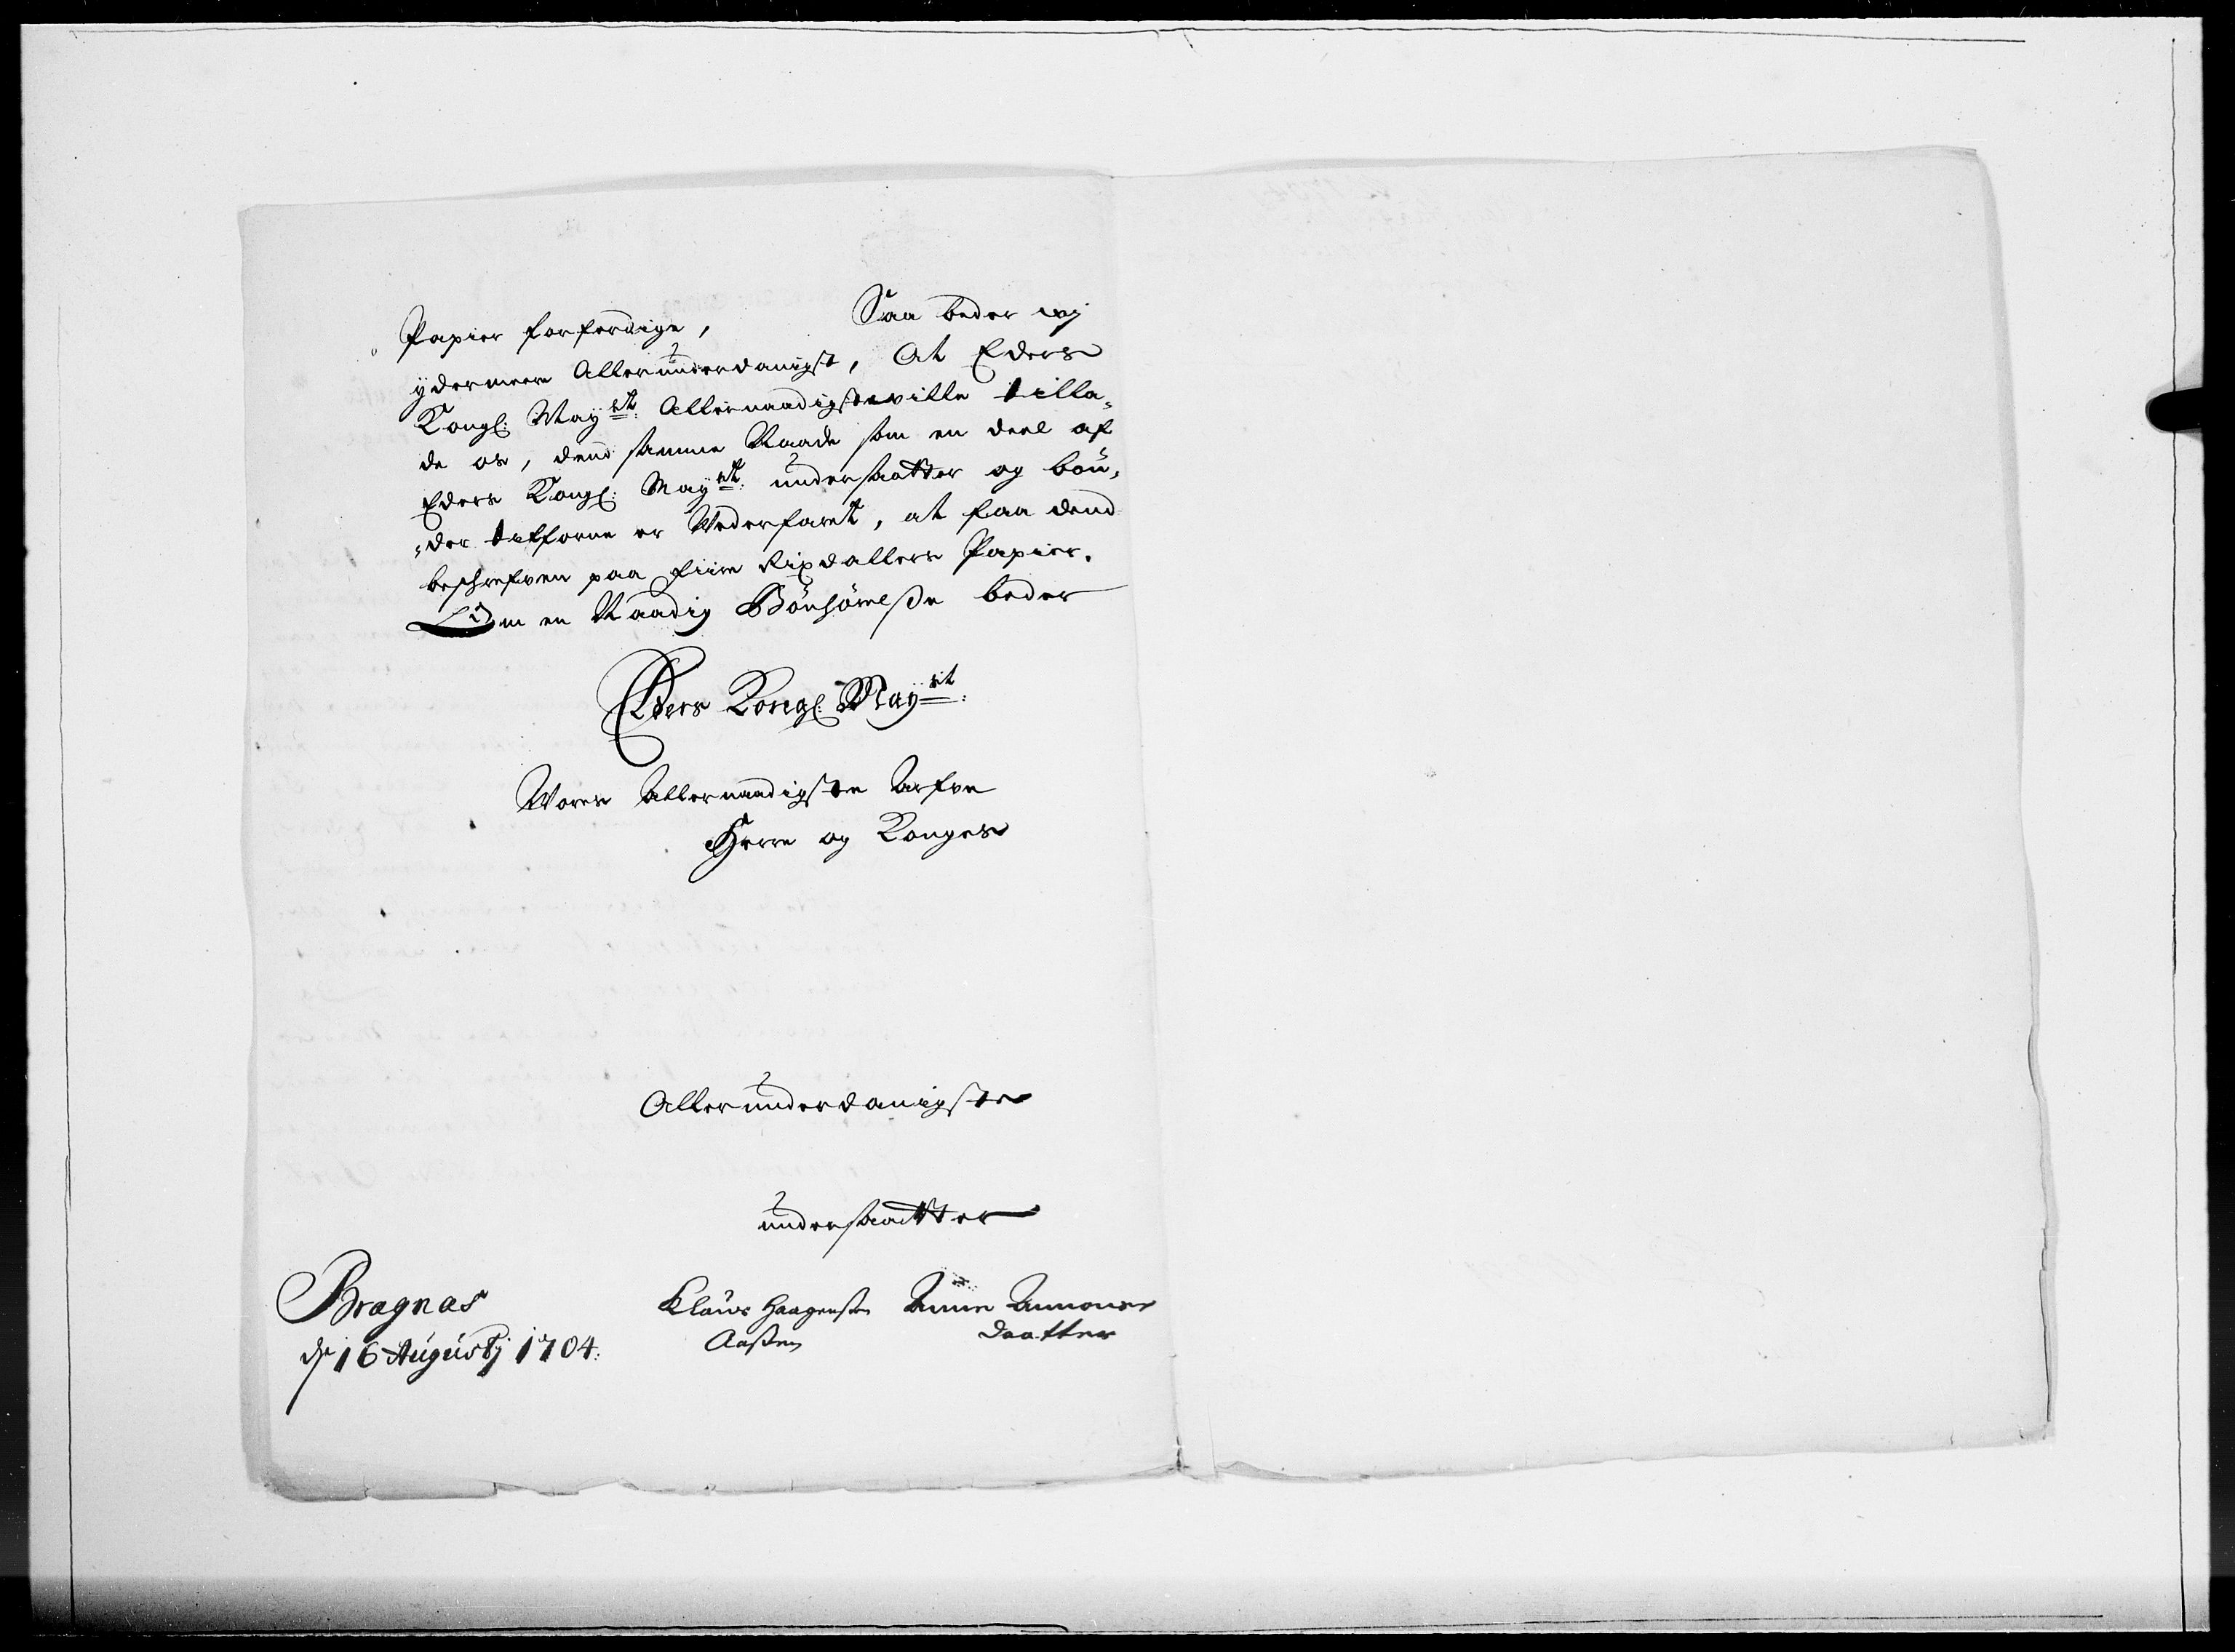 Papier forferdige, Saa beder wj
ydermeere Allerunderdanigst, At Eders
Kongl: Mayst: Allernaadigste ville tilla,,
de os, dend samme Naade som en deel af
Eders Kongl: Mayst: undersaatter og bøn,,
,,der tilforne er Wederfaret, at faa dend
beschrefven paa fiire Rixdallers Papier.
Om en Naadig Bønhørelße beder
Eders Kongl: Mayst:
Wores Allernaadigste Arfve
Herre og Konges
Allerunderdanigste
undersaatter
Bragnæs
dj 16 Augustj 1704.
Klaus Haagensen Anne
Aaßen daatter